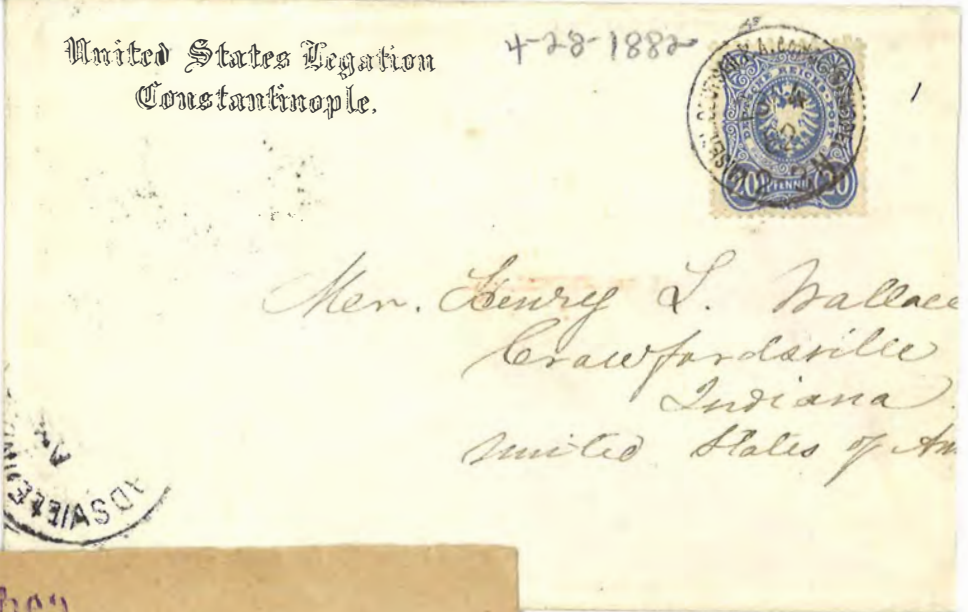 United States Legation
Constantinople.
4-28-1882
DEUTSCHE REICHS-POST
20 PFENNIG 20
Mr. Henry L. Wallace
Crawfordsville
Indiana
United States of Am